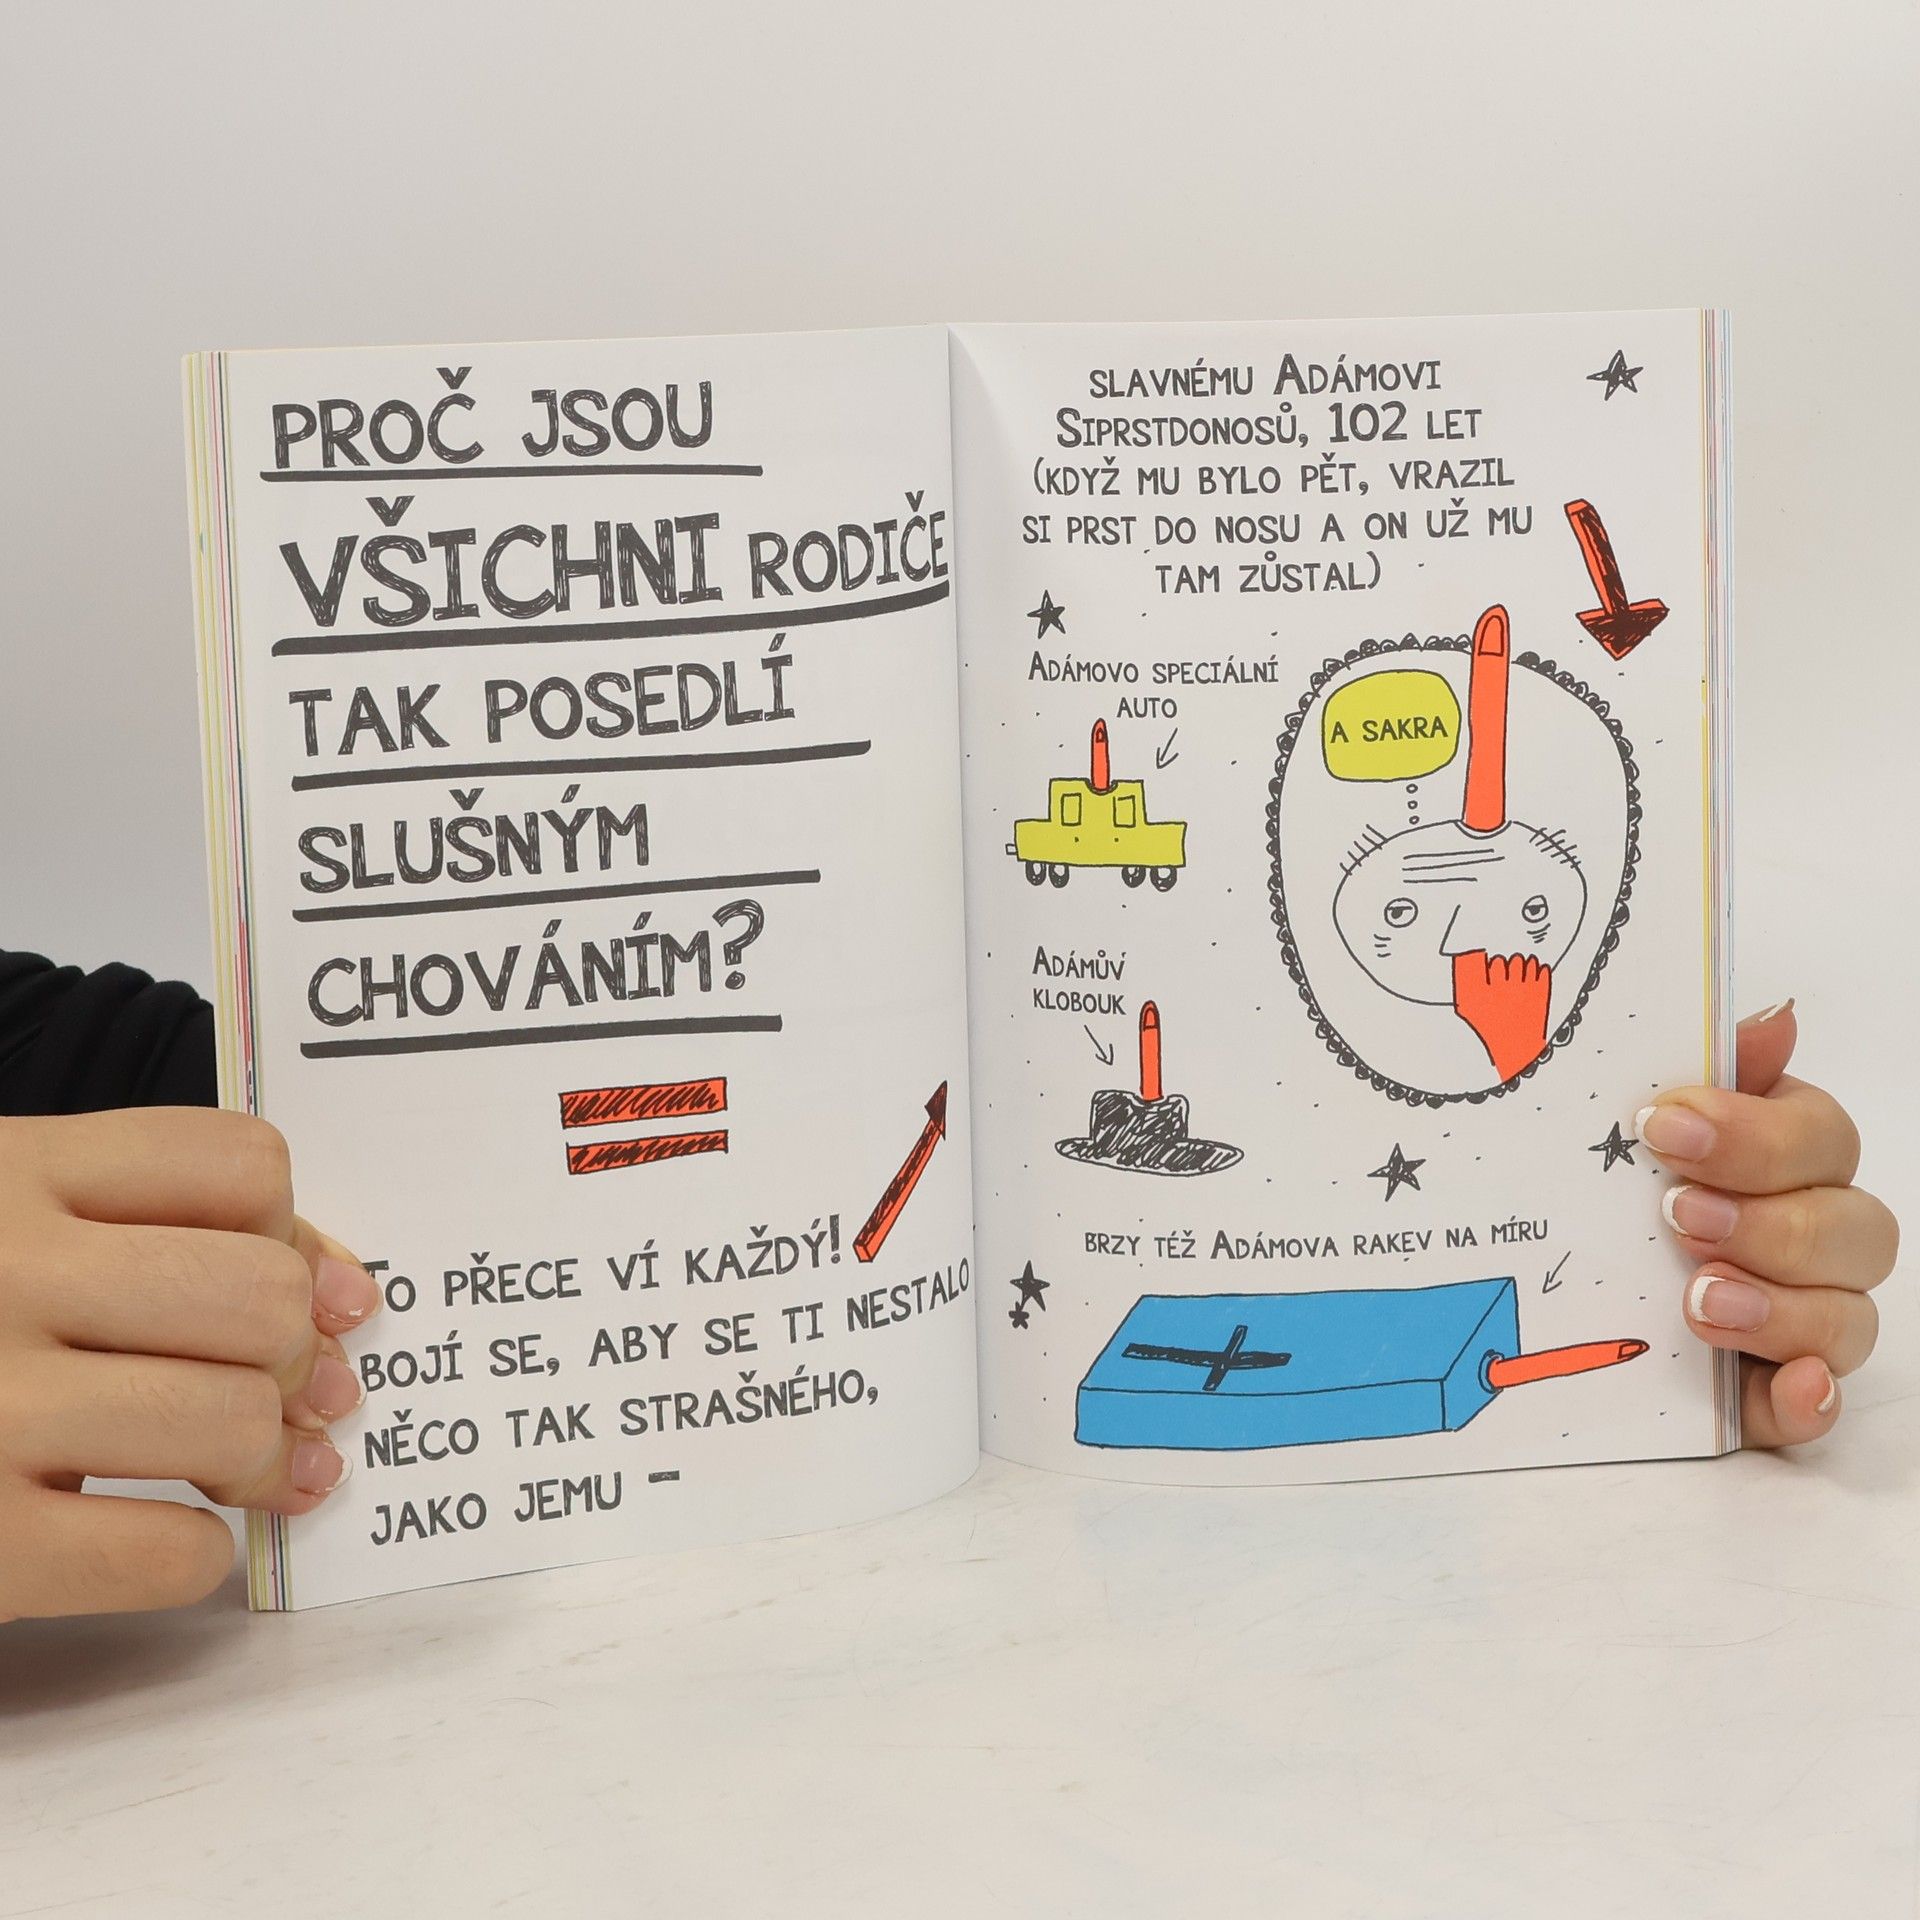 PROČ JSOU
VŠICHNI RODIČE
TAK POSEDLÍ
SLUŠNÝM
CHOVÁNÍM?
TO PŘECE VÍ KAŽDÝ!
BOJÍ SE, ABY SE TI NESTALO
NĚCO TAK STRAŠNÉHO,
JAKO JEMU –
SLAVNÉMU ADÁMOVI
SIPRSTDONOSŮ, 102 LET
(KDYŽ MU BYLO PĚT, VRAZIL
SI PRST DO NOSU A ON UŽ MU
TAM ZŮSTAL)
ADÁMOVO SPECIÁLNÍ
AUTO
A SAKRA
ADÁMŮV
KLOBOUK
BRZY TÉŽ ADÁMOVA RAKEV NA MÍRU